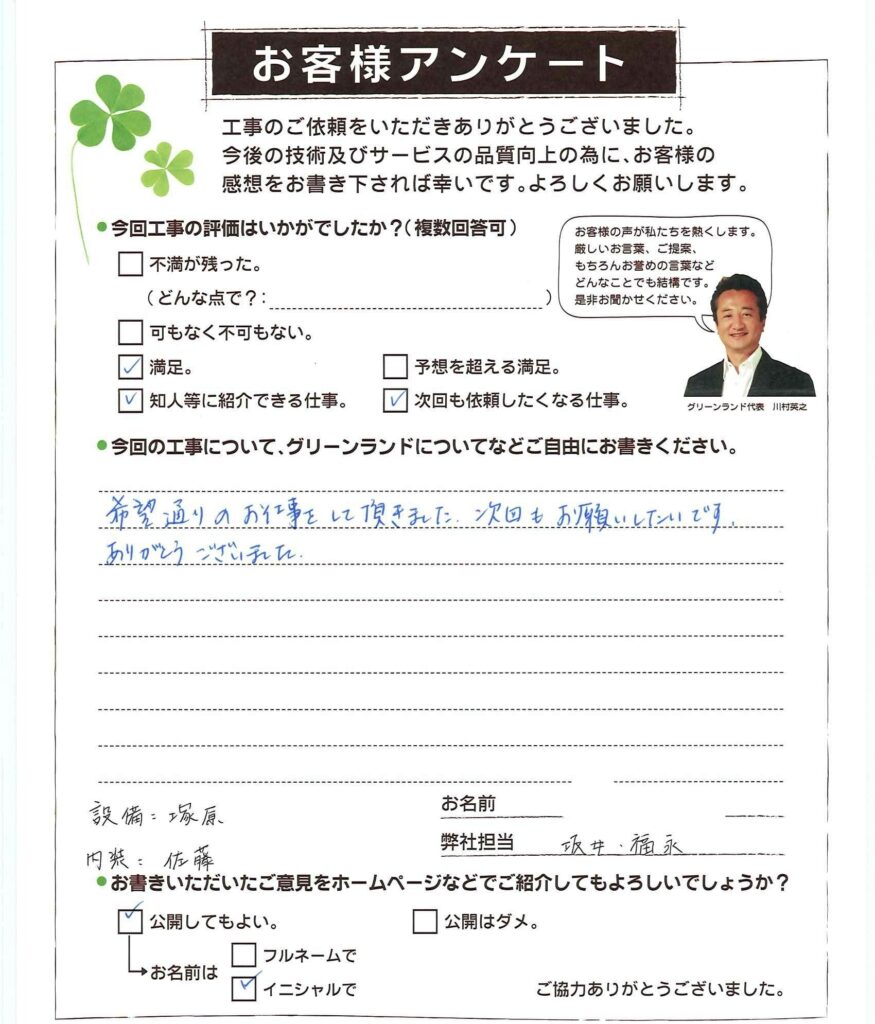 お客様アンケート
工事のご依頼をいただきありがとうございました。
今後の技術及びサービスの品質向上の為に、お客様の
感想をお書き下されば幸いです。よろしくお願いします。
今回工事の評価はいかがでしたか？（複数回答可）
不満が残った。
（どんな点で？：　　　）
可もなく不可もない。
満足。　予想を超える満足。
知人等に紹介できる仕事。　次回も依頼したくなる仕事。
お客様の声が私たちを熱くします。
厳しいお言葉、ご提案、
もちろんお誉めの言葉など
どんなことでも結構です。
是非お聞かせください。
グリーンランド代表　川村英之
今回の工事について、グリーンランドについてなどご自由にお書きください。
希望通りのお仕事をして頂きました。次回もお願いしたいです。
ありがとうございました。
設備：塚原
お名前
弊社担当　坂井・福永
内装：佐藤
お書きいただいたご意見をホームページなどでご紹介してもよろしいでしょうか？
公開してもよい。　公開はダメ。
お名前は
フルネームで
イニシャルで
ご協力ありがとうございました。